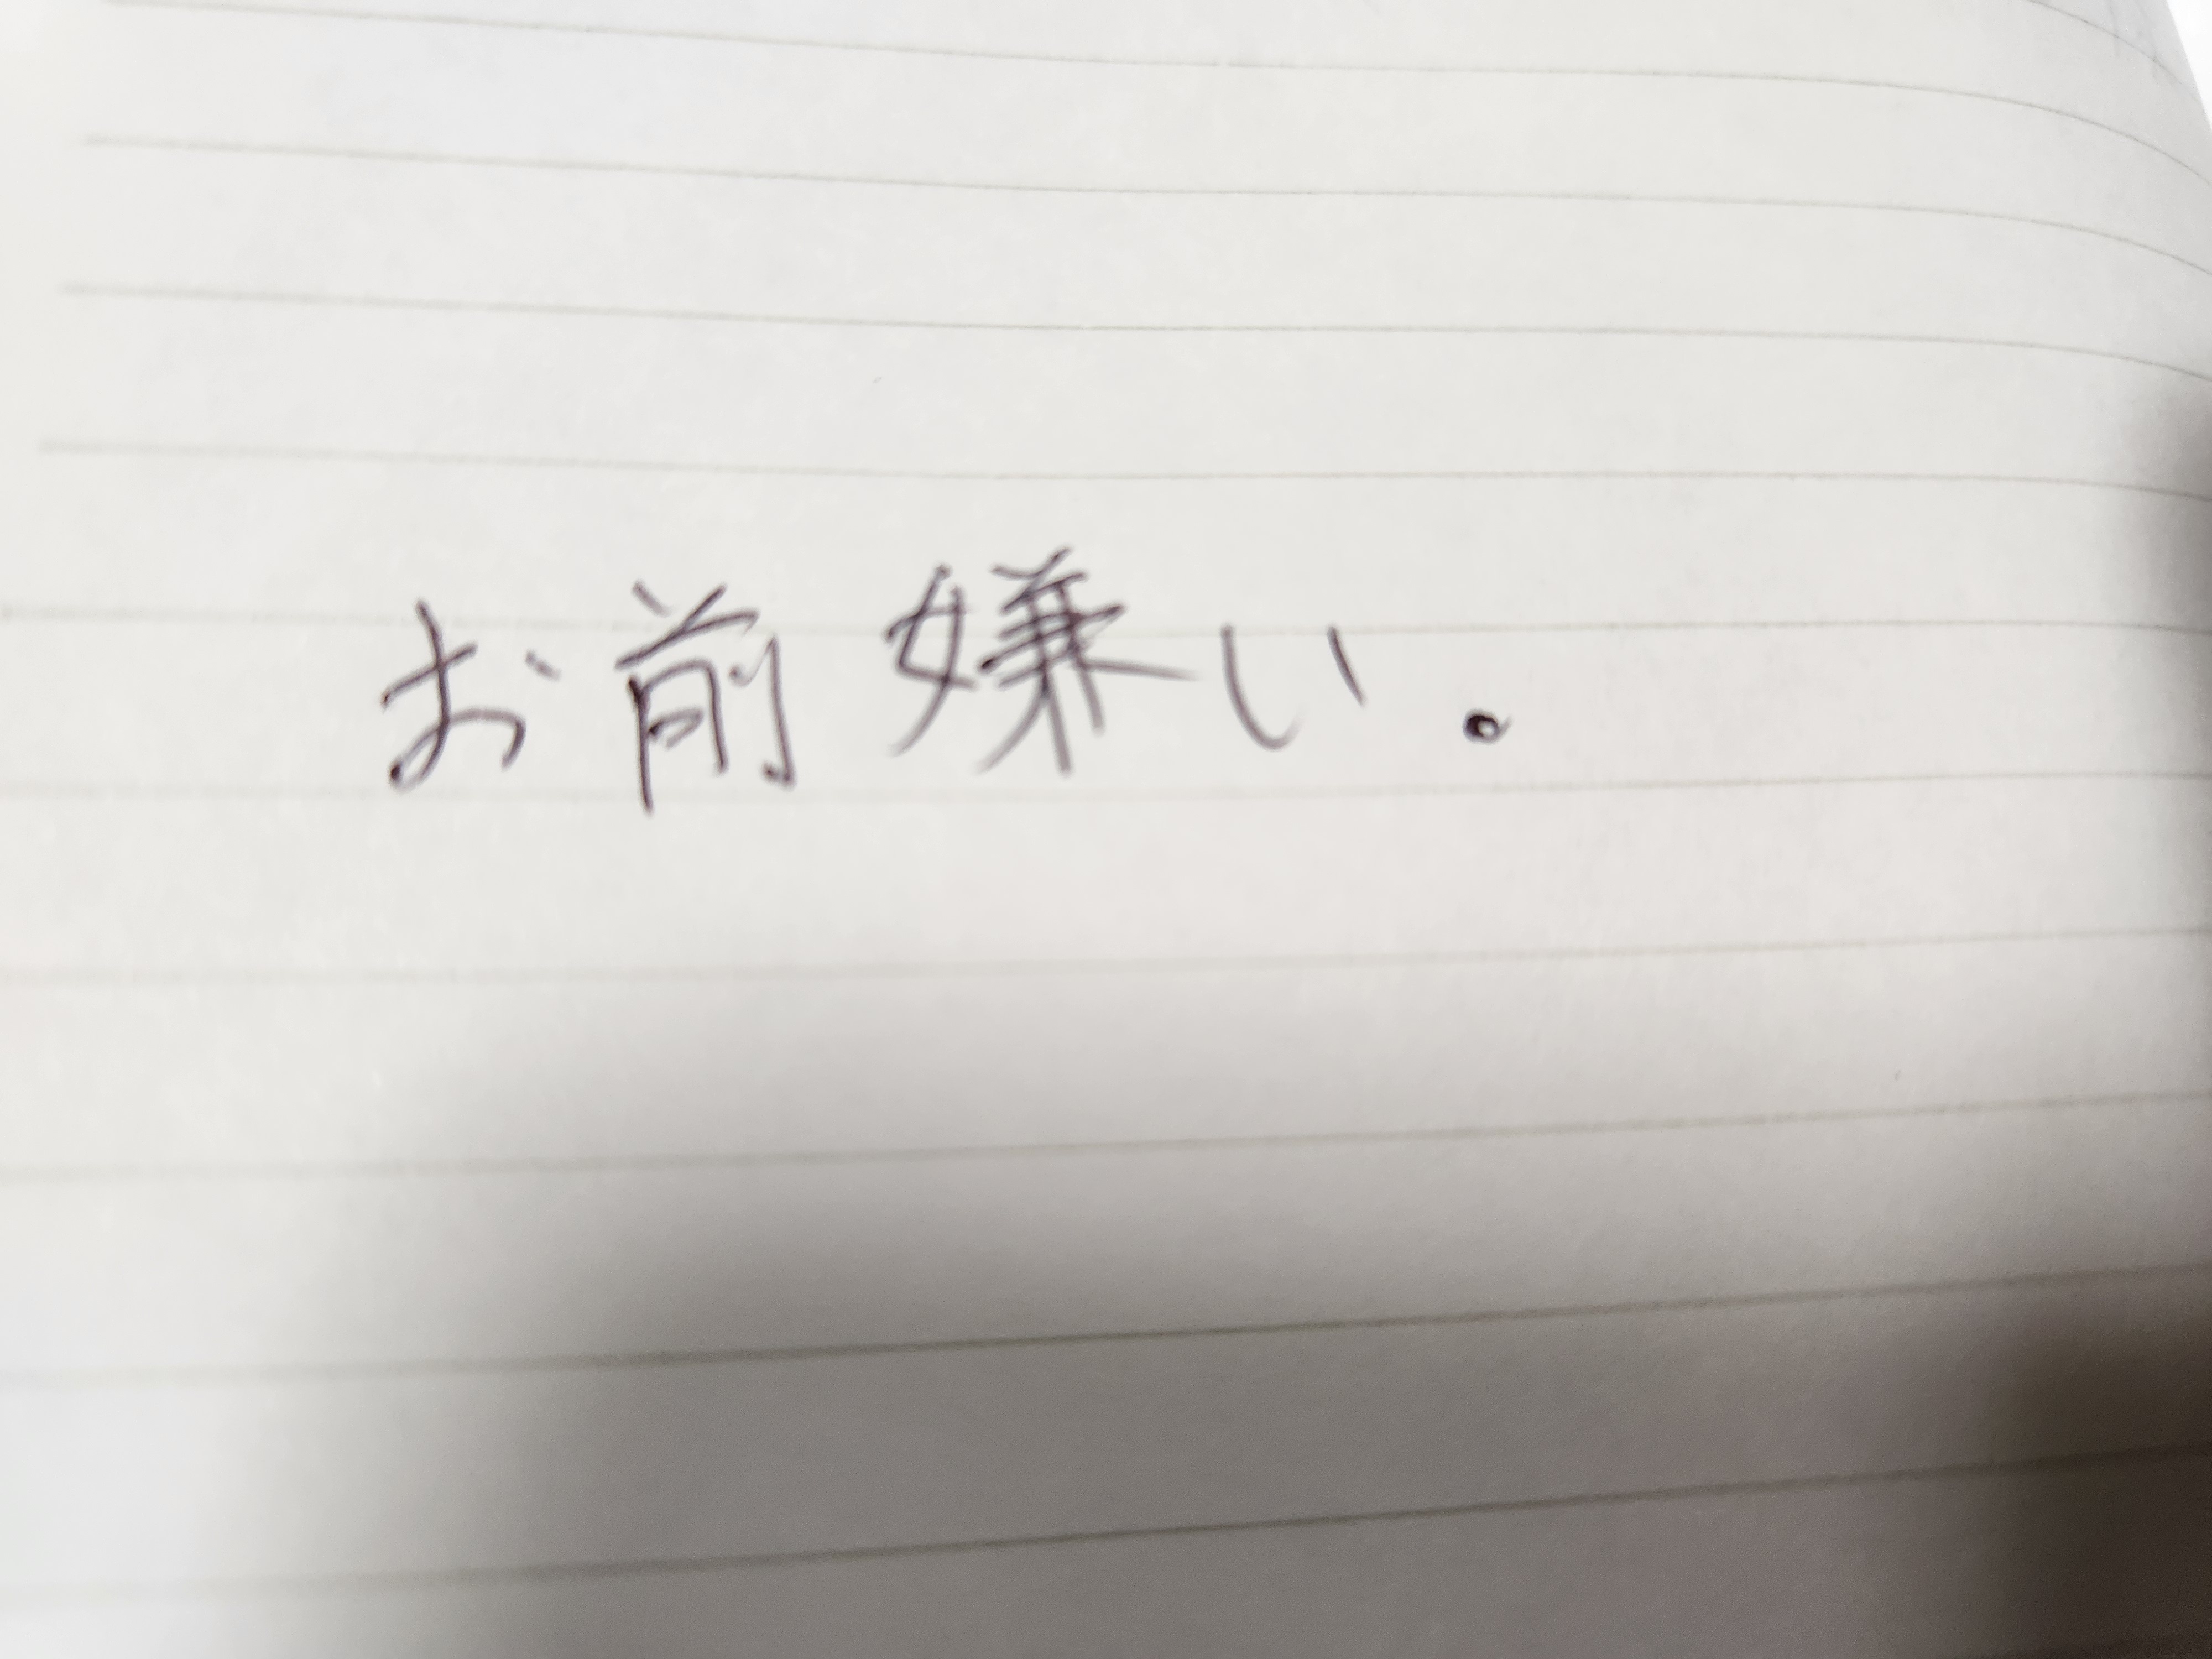 お前嫌い。